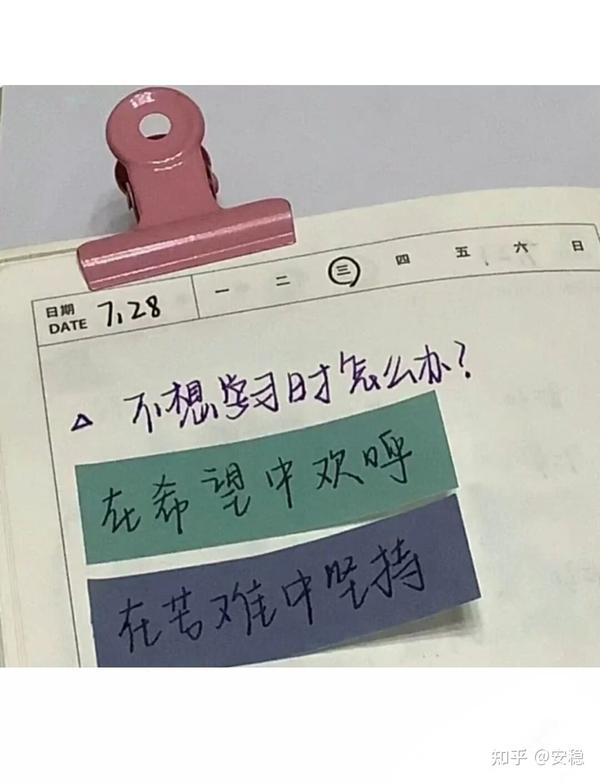 日期 DATE 7.28 一 二 三 四 五 六 日
△ 不想学习时怎么办?
在希望中欢呼
在苦难中坚持
知乎 @安稳